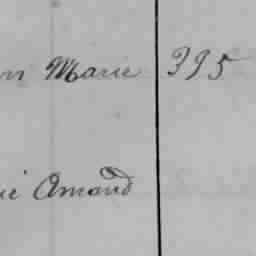 n Marie 395
ié Amand